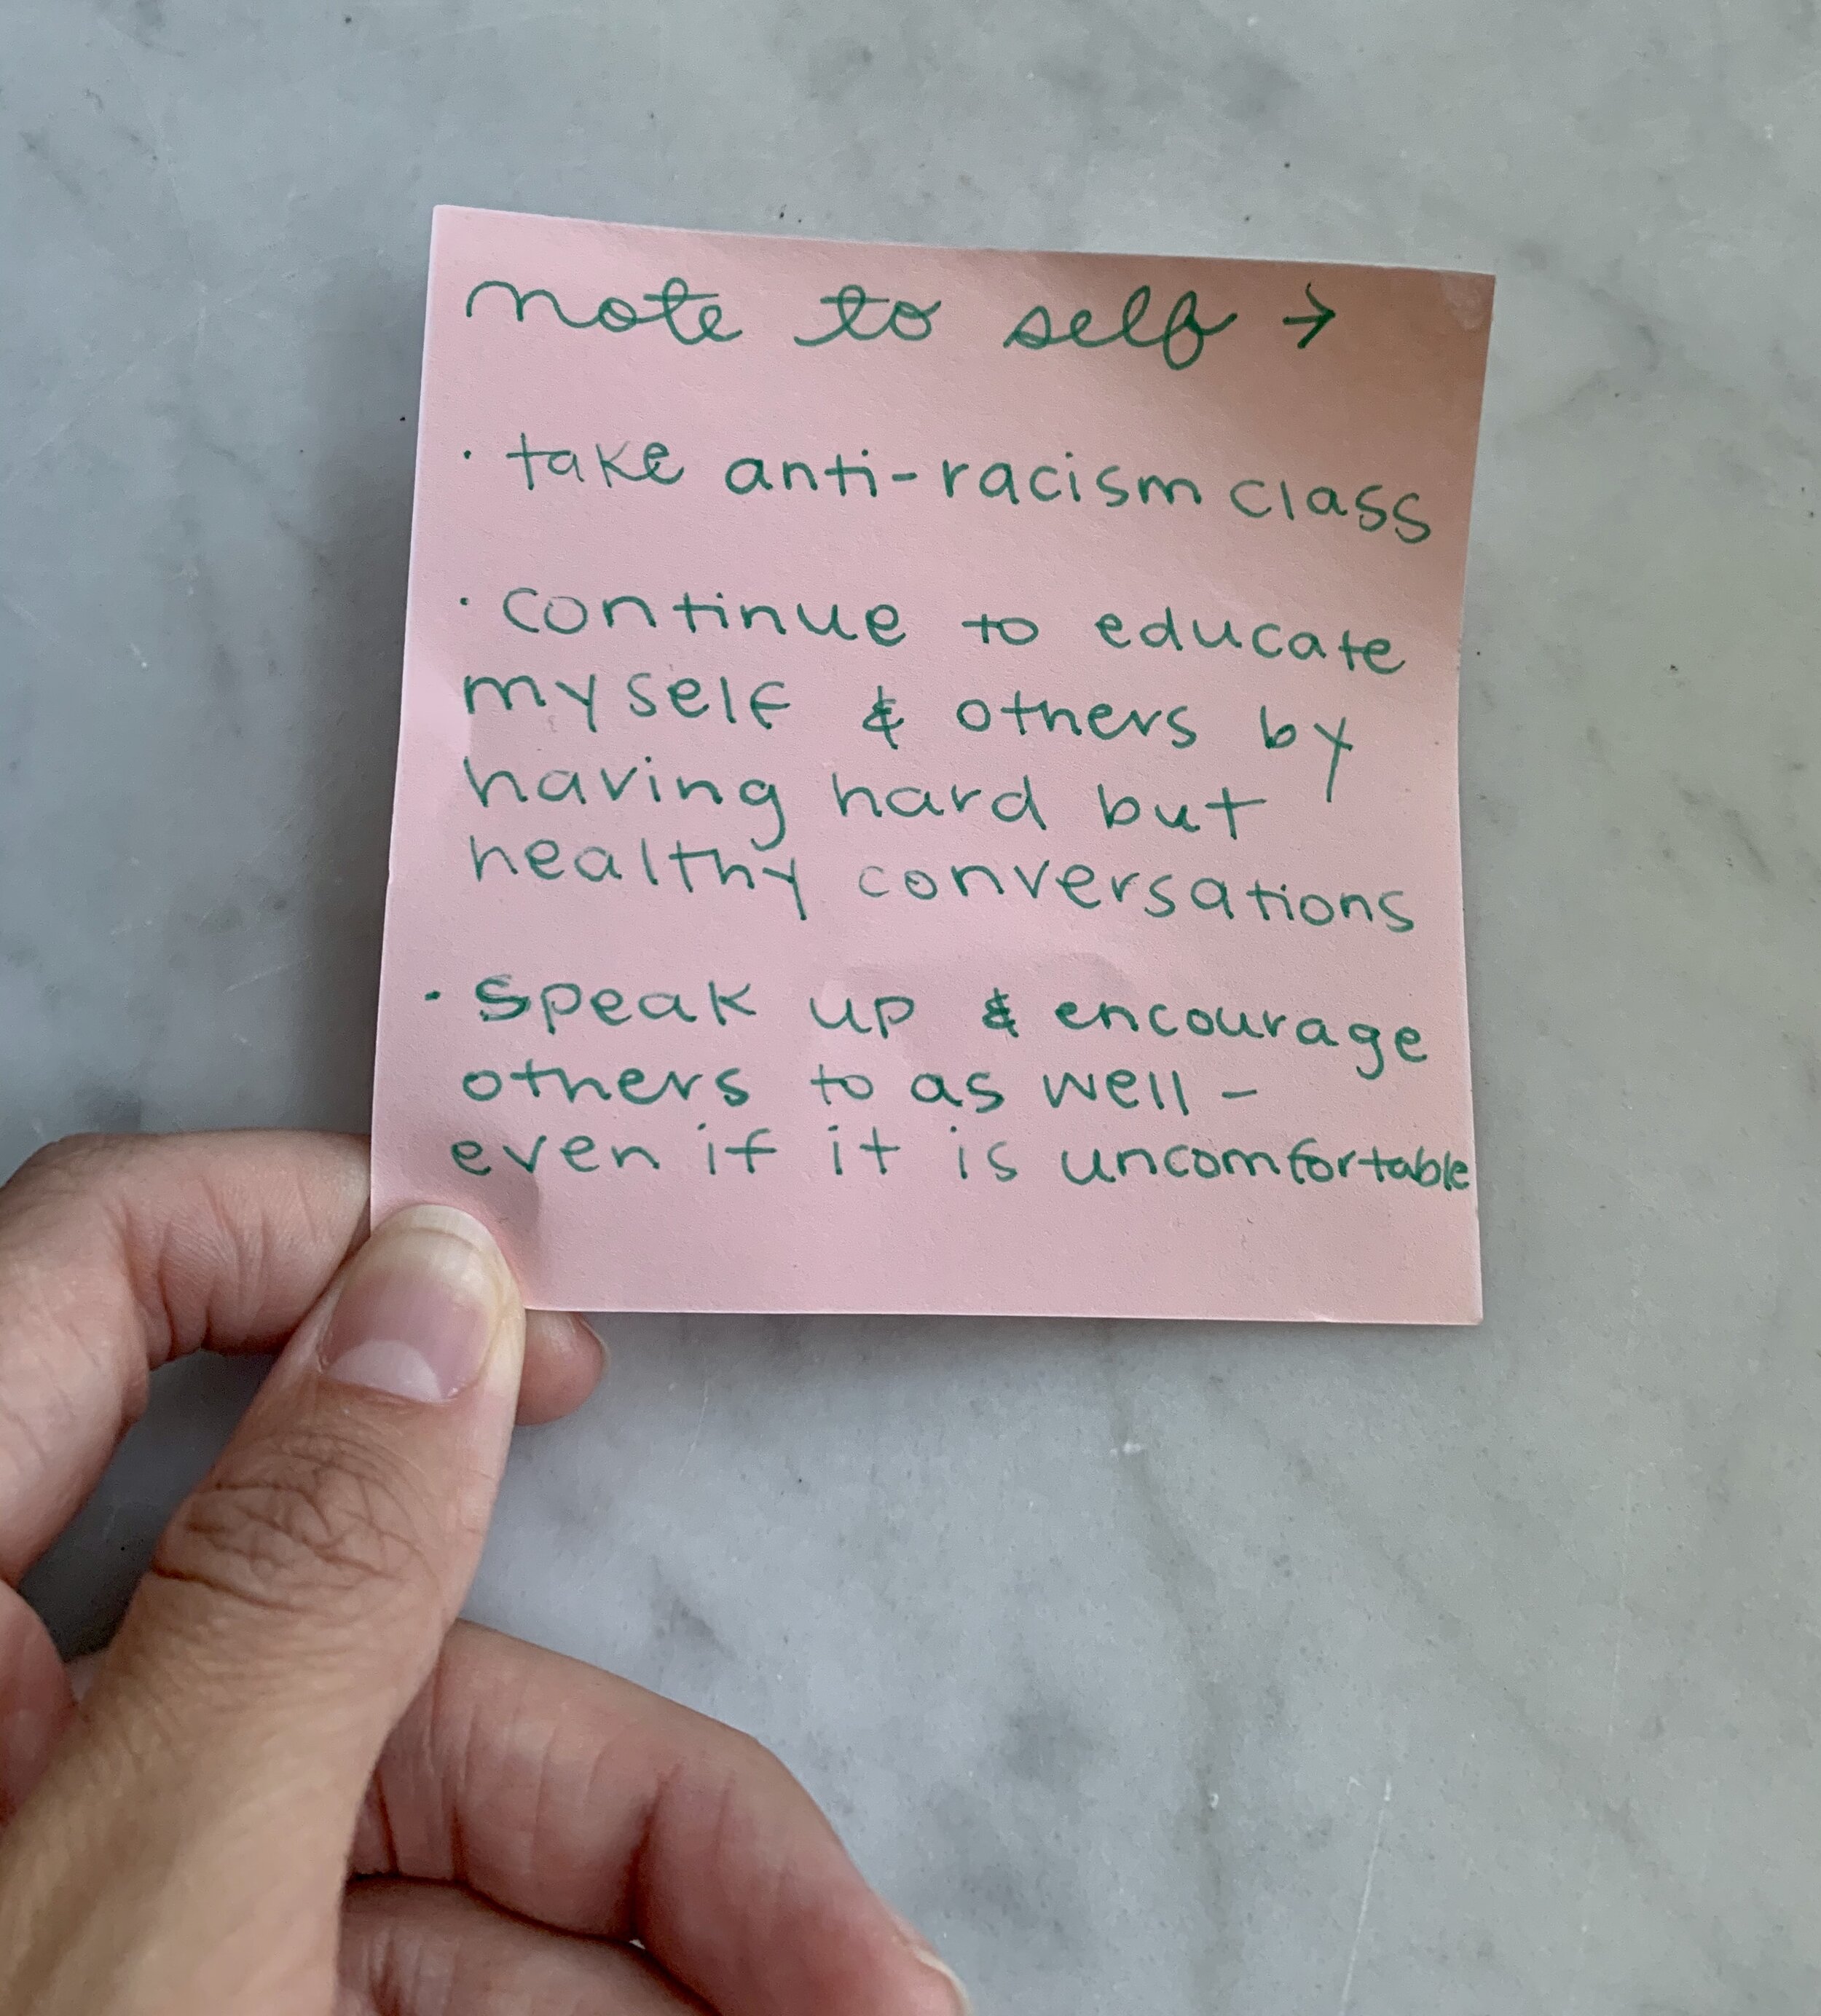 note to self →
· take anti-racism class
· continue to educate
myself & others by
having hard but
healthy conversations
· speak up & encourage
others to as well -
even if it is uncomfortable